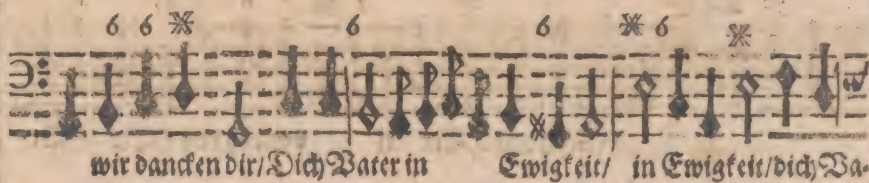 6 6 6 6 6
wir dancken dir/Dich Vater in Ewigkeit/ in Ewigkeit/dich Va-